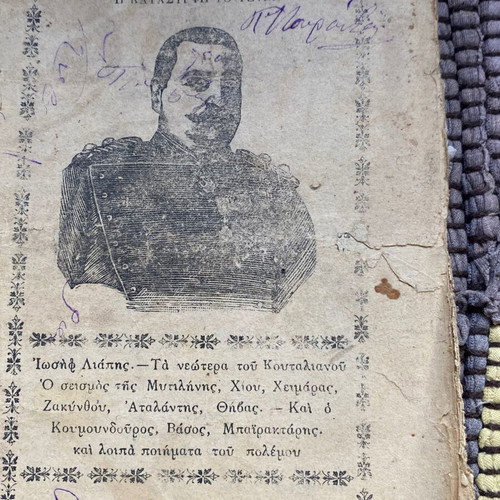 Ἰωσὴφ Λιάπης.—Τὰ νεώτερα τοῦ Κουταλιανοῦ
Ὁ σεισμὸς τῆς Μυτιλήνης, Χίου, Χειμάρας,
Ζακύνθου, Ἀταλάντης, Θήβας. — Καὶ ὁ
Κουμουνδοῦρος, Βάσος, Μπαϊρακτάρης.
καὶ λοιπὰ ποιήματα τοῦ πολέμου